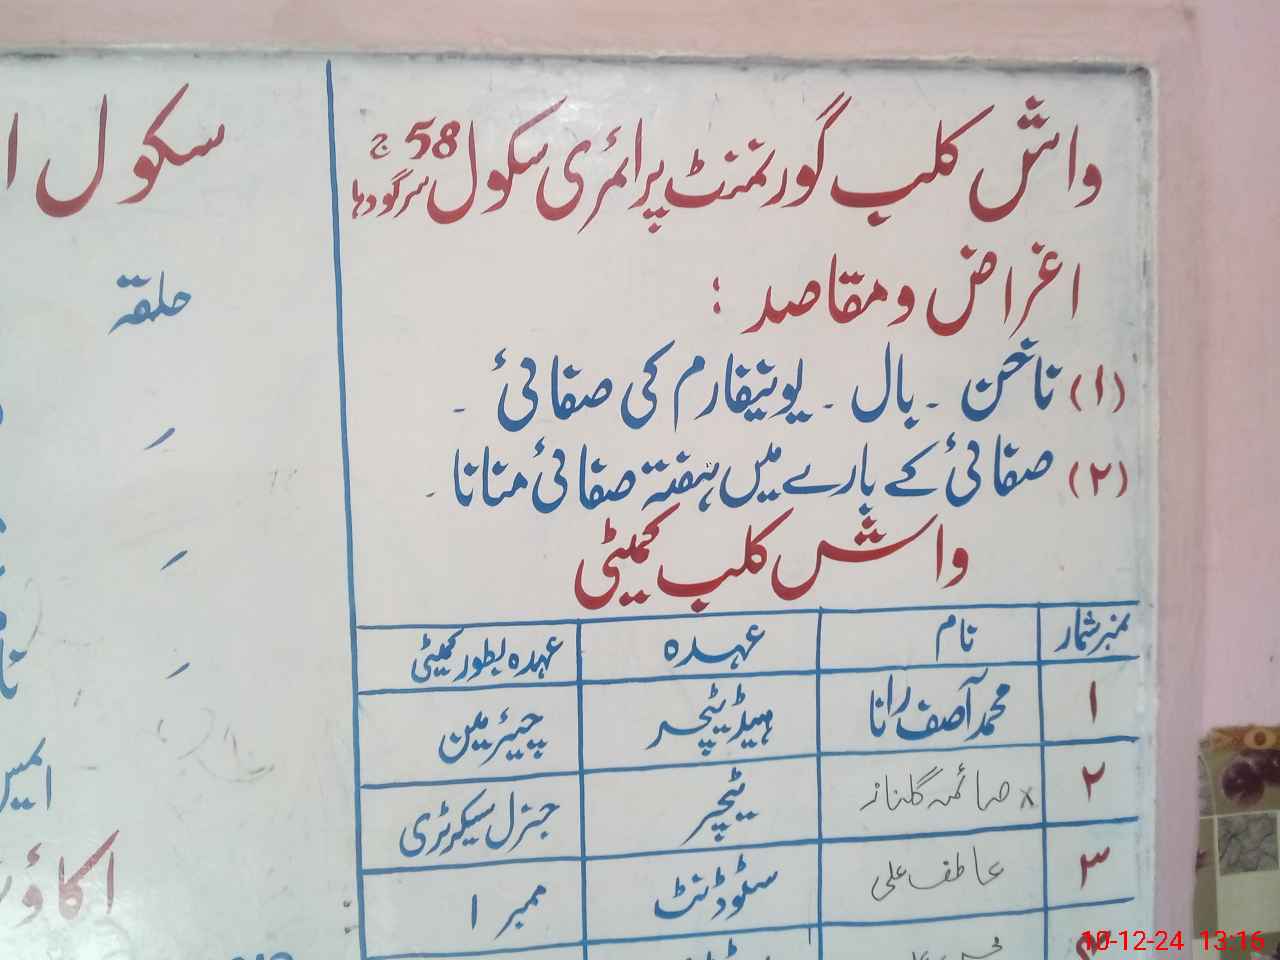 واش کلب گورنمنٹ پرائمری سکول 58 ج سرگودہا
اغراض و مقاصد :
(۱) ناخن ۔ بال ۔ یونیفارم کی صفائی ۔
(۲) صفائی کے بارے میں ہفتہ صفائی منانا ۔
واش کلب کمیٹی
نمبر شمار نام عہدہ عہدہ بطور کمیٹی
۱ محمد آصف رانا ہیڈ ٹیچر چیئرمین
۲ x صائمہ گلناز ٹیچر جنرل سیکرٹری
۳ عاطف علی سٹوڈنٹ ممبر ۱
۴
سکول ا
حلقہ
10-12-24 13:16